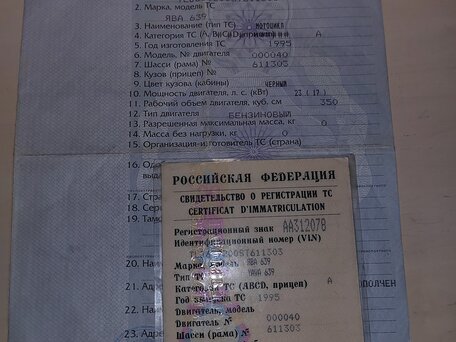 2. Марка, модель ТС
ЯВА 639
3. Наименование (тип ТС) МОТОЦИКЛ
4. Категория ТС (А, В, С, D, прицеп) А
5. Год изготовления ТС 1995
6. Модель, № двигателя 000040
7. Шасси (рама) № 611303
8. Кузов (прицеп) №
9. Цвет кузова (кабины) ЧЕРНЫЙ
10. Мощность двигателя, л. с. (кВт) 23 ( 17)
11. Рабочий объем двигателя, куб. см 350
12. Тип двигателя БЕНЗИНОВЫЙ
13. Разрешенная максимальная масса, кг 0
14. Масса без нагрузки, кг 0
15. Организация-изготовитель ТС (страна)
16.
17.
18.
19.
20.
21.
22.
23.
РОССИЙСКАЯ ФЕДЕРАЦИЯ
СВИДЕТЕЛЬСТВО О РЕГИСТРАЦИИ ТС
CERTIFICAT D'IMMATRICULATION
Регистрационный знак АА312078
Идентификационный номер (VIN)
Марка, ЯВА 639
Тип ТС YAVA 639
Категория ТС (ABCD, прицеп) А
Год выпуска ТС 1995
Двигатель, модель
Двигатель № 000040
Шасси (рама) № 611303